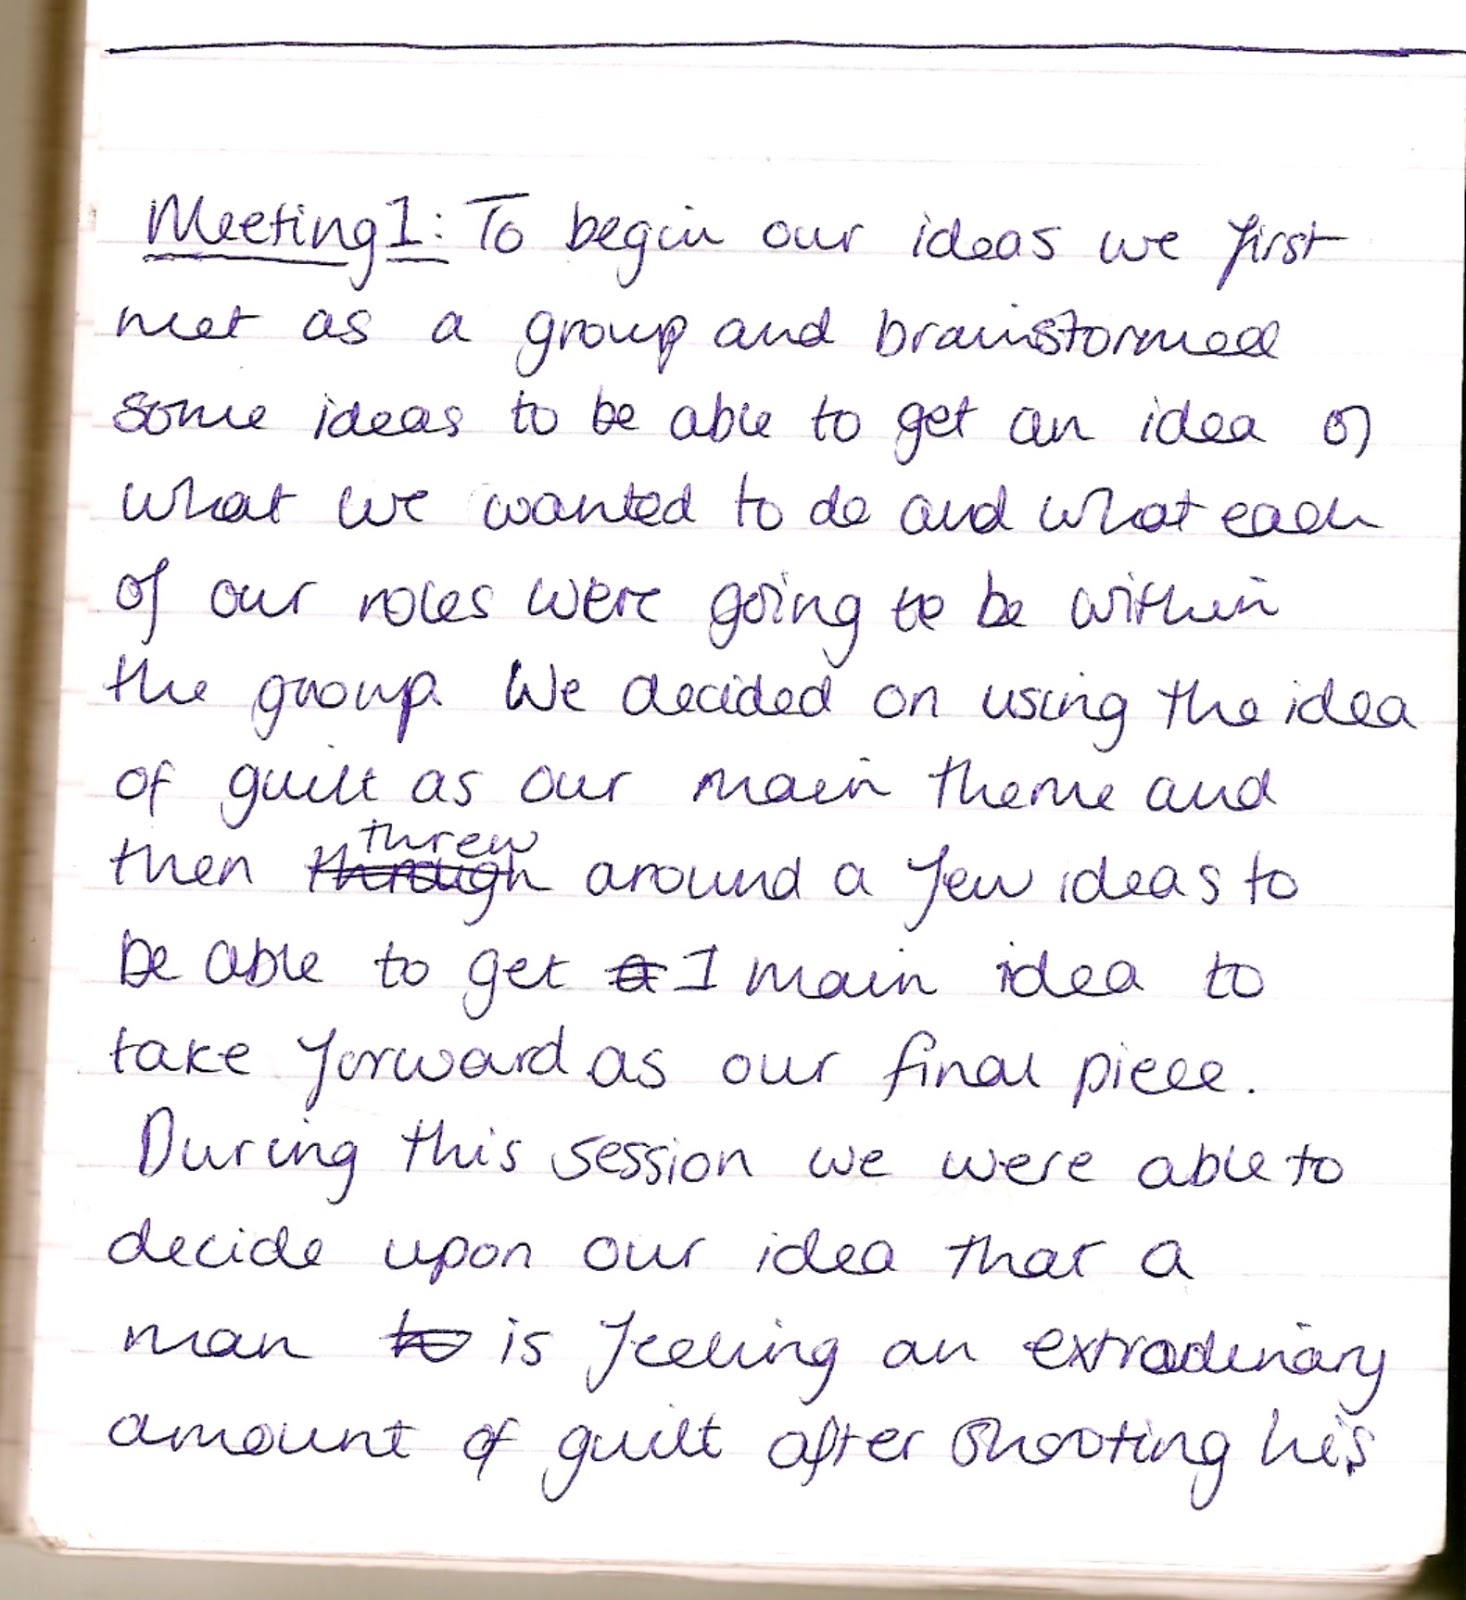 Meeting 1: To begin our ideas we first
met as a group and brainstormed
some ideas to be able to get an idea of
what we wanted to do and what each
of our roles were going to be within
the group. We decided on using the idea
of guilt as our main theme and
threw
then through around a few ideas to
be able to get a 1 main idea to
take forward as our final piece.
During this session we were able to
decide upon our idea that a
man to is feeling an extradinary
amount of guilt after shooting his